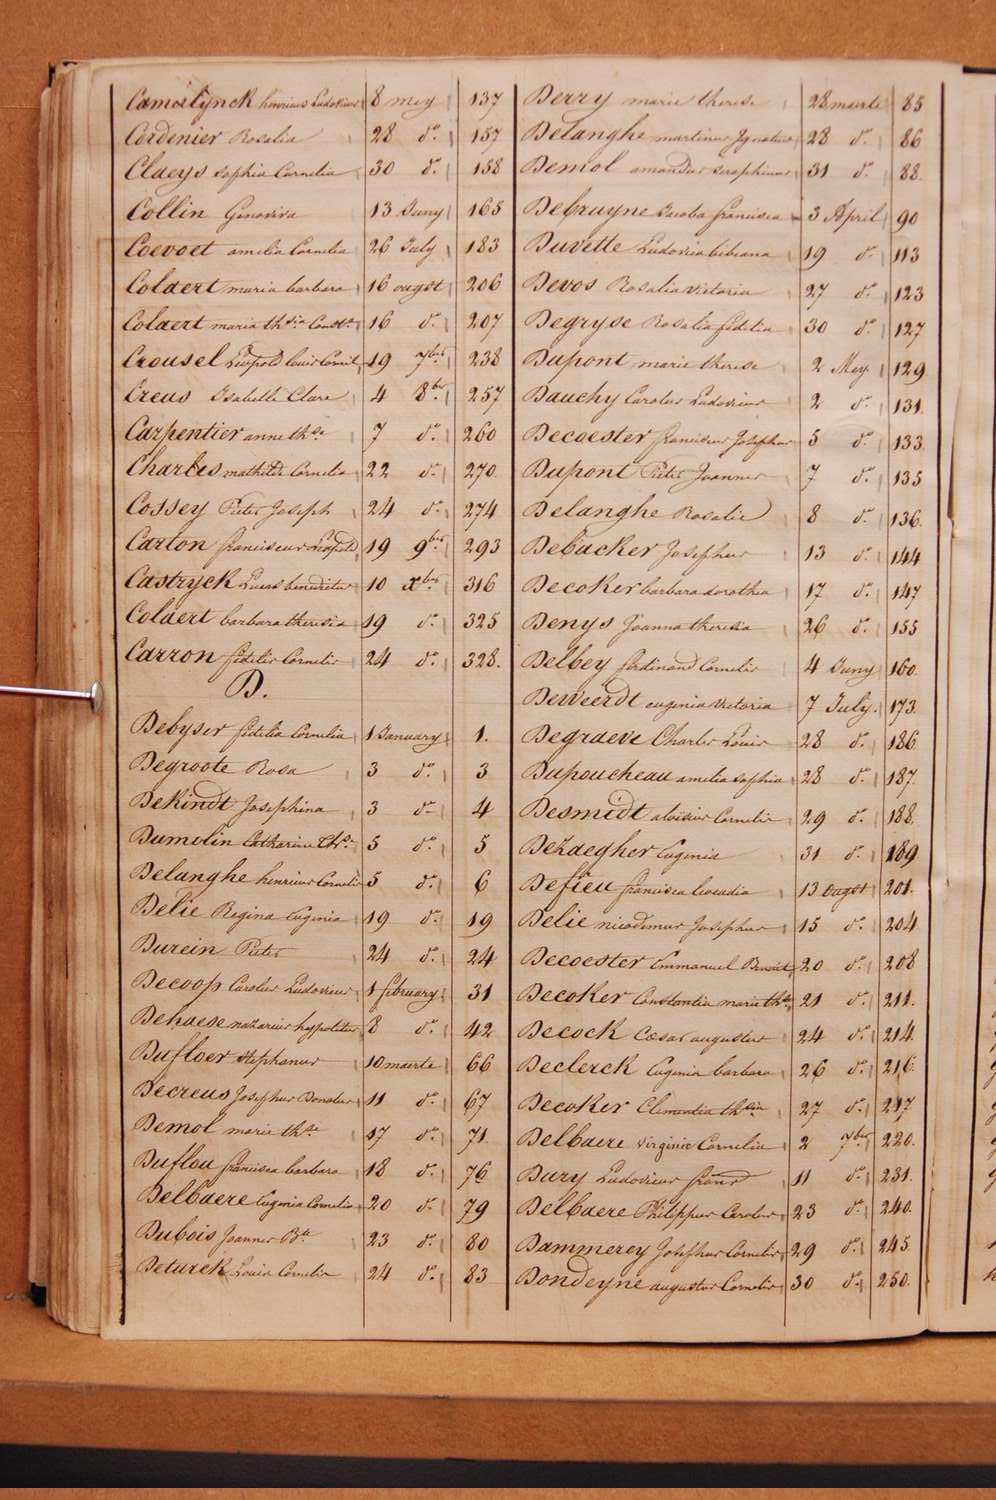 Camerlynck henricus Ludovicus 8 mey 137
Cordenier Rosalia 28 do. 157
Claeys Sophia Cornelia 30 do. 158
Collin Genoviva 13 Juny 165
Coevoet amelia Cornelia 26 July 183
Coldert maria barbara 16 ougst 206
Coldert maria thsia Const.a 16 do. 207
Crousel Leopold Louis Cornil 19 7bre 238
Creus Isabelle Clare 4 8bre 257
Carpentier anne thse 7 do. 260
Charles mathilde Cornelia 22 do. 270
Cossey Pieter Joseph 24 do. 274
Carton franciscus Leopold 19 9bre 293
Castryck Lucas benedictus 10 xbre 316
Coldert barbara theresia 19 do. 325
Carron fidelis Cornelis 24 do. 328.
D.
Debyser fidelia Cornelia 1 January 1.
Degroote Rosa 3 do. 3
DeKindt Josephina 3 do 4
Dumolin Catharina Ths. 5 do. 5
Delanghe henricus Cornelis 5 do. 6
Delie Regina Eugenia 19 do. 19
Durein Pieter 24 do. 24
Decoop Carolus Ludovicus 1 february 31
Dehaese nazarius hyppolitus 8 do. 42
Dufloer Stephanus 10 maerte 66
Decreus Josephus Donatus 11 do. 67
Demol marie thse 17 do. 71.
Duflou francisca barbara 18 do. 76
Delbaere Eugenia Cornelia 20 do. 79
Dubois Joannes Bte 23 do. 80
Deturck Louis Cornelis 24 do. 83
Derry marie therese 28 maerte 85
Delanghe martinus Ignatius 28 do. 86
Demol amandus Seraphinus 31 do. 88.
Debruyne Jacoba francisca 3 April 90
Duvette Ludovica bibiana 19 do. 113
Devos Rosalia Victoria 27 do. 123
Degryse Rosalia fidelia 30 do. 127
Dupont marie therese 2 Mey 129
Dauchy Carolus Ludovicus 2 do. 131.
Decoester franciscus Josephus 5 do. 133
Dupont Pieter Joannes 7 do. 135
Delanghe Rosalie 8 do. 136.
Debacker Josephus 13 do. 144
Decoker barbara dorothea 17 do. 147
Denys Joanna theresia 26 do. 155
Delbey ferdinand Cornelis 4 Juny 160.
Deweerdt eugenia Victoria 7 July. 173
Degraeve Charles Louis 28 do. 186
Dupoucheau amelia Sophia 28 do. 187.
Desmidt aloisius Cornelis 29 do. 188.
Dezaegher Eugenia 31 do. 189
Defieu francisca Leocadia 13 ougst 201.
Delie nicodemus Josephus 15 do. 204
Decoester Emmanuel Benoit 20 do. 208
Decoker Constantia marie ths. 21 do. 211.
Decock Cæsar augustus 24 do. 214.
Declerck Eugenia barbara 26 do. 216.
Decoker Clementia thsia 27 do. 217
Delbaere virginie Cornelia 2 7bre 220.
Dury Ludovicus 11 do. 231.
Delbaere Philippus Carolus 23 do. 240.
Dammerey Josephus Cornelis 29 do. 245.
Dondeyne augustus Cornelis 30 do. 250.